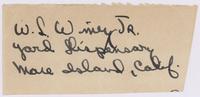 W. L. Winey Jr.
yard Dispensary
Mare Island, Calif.